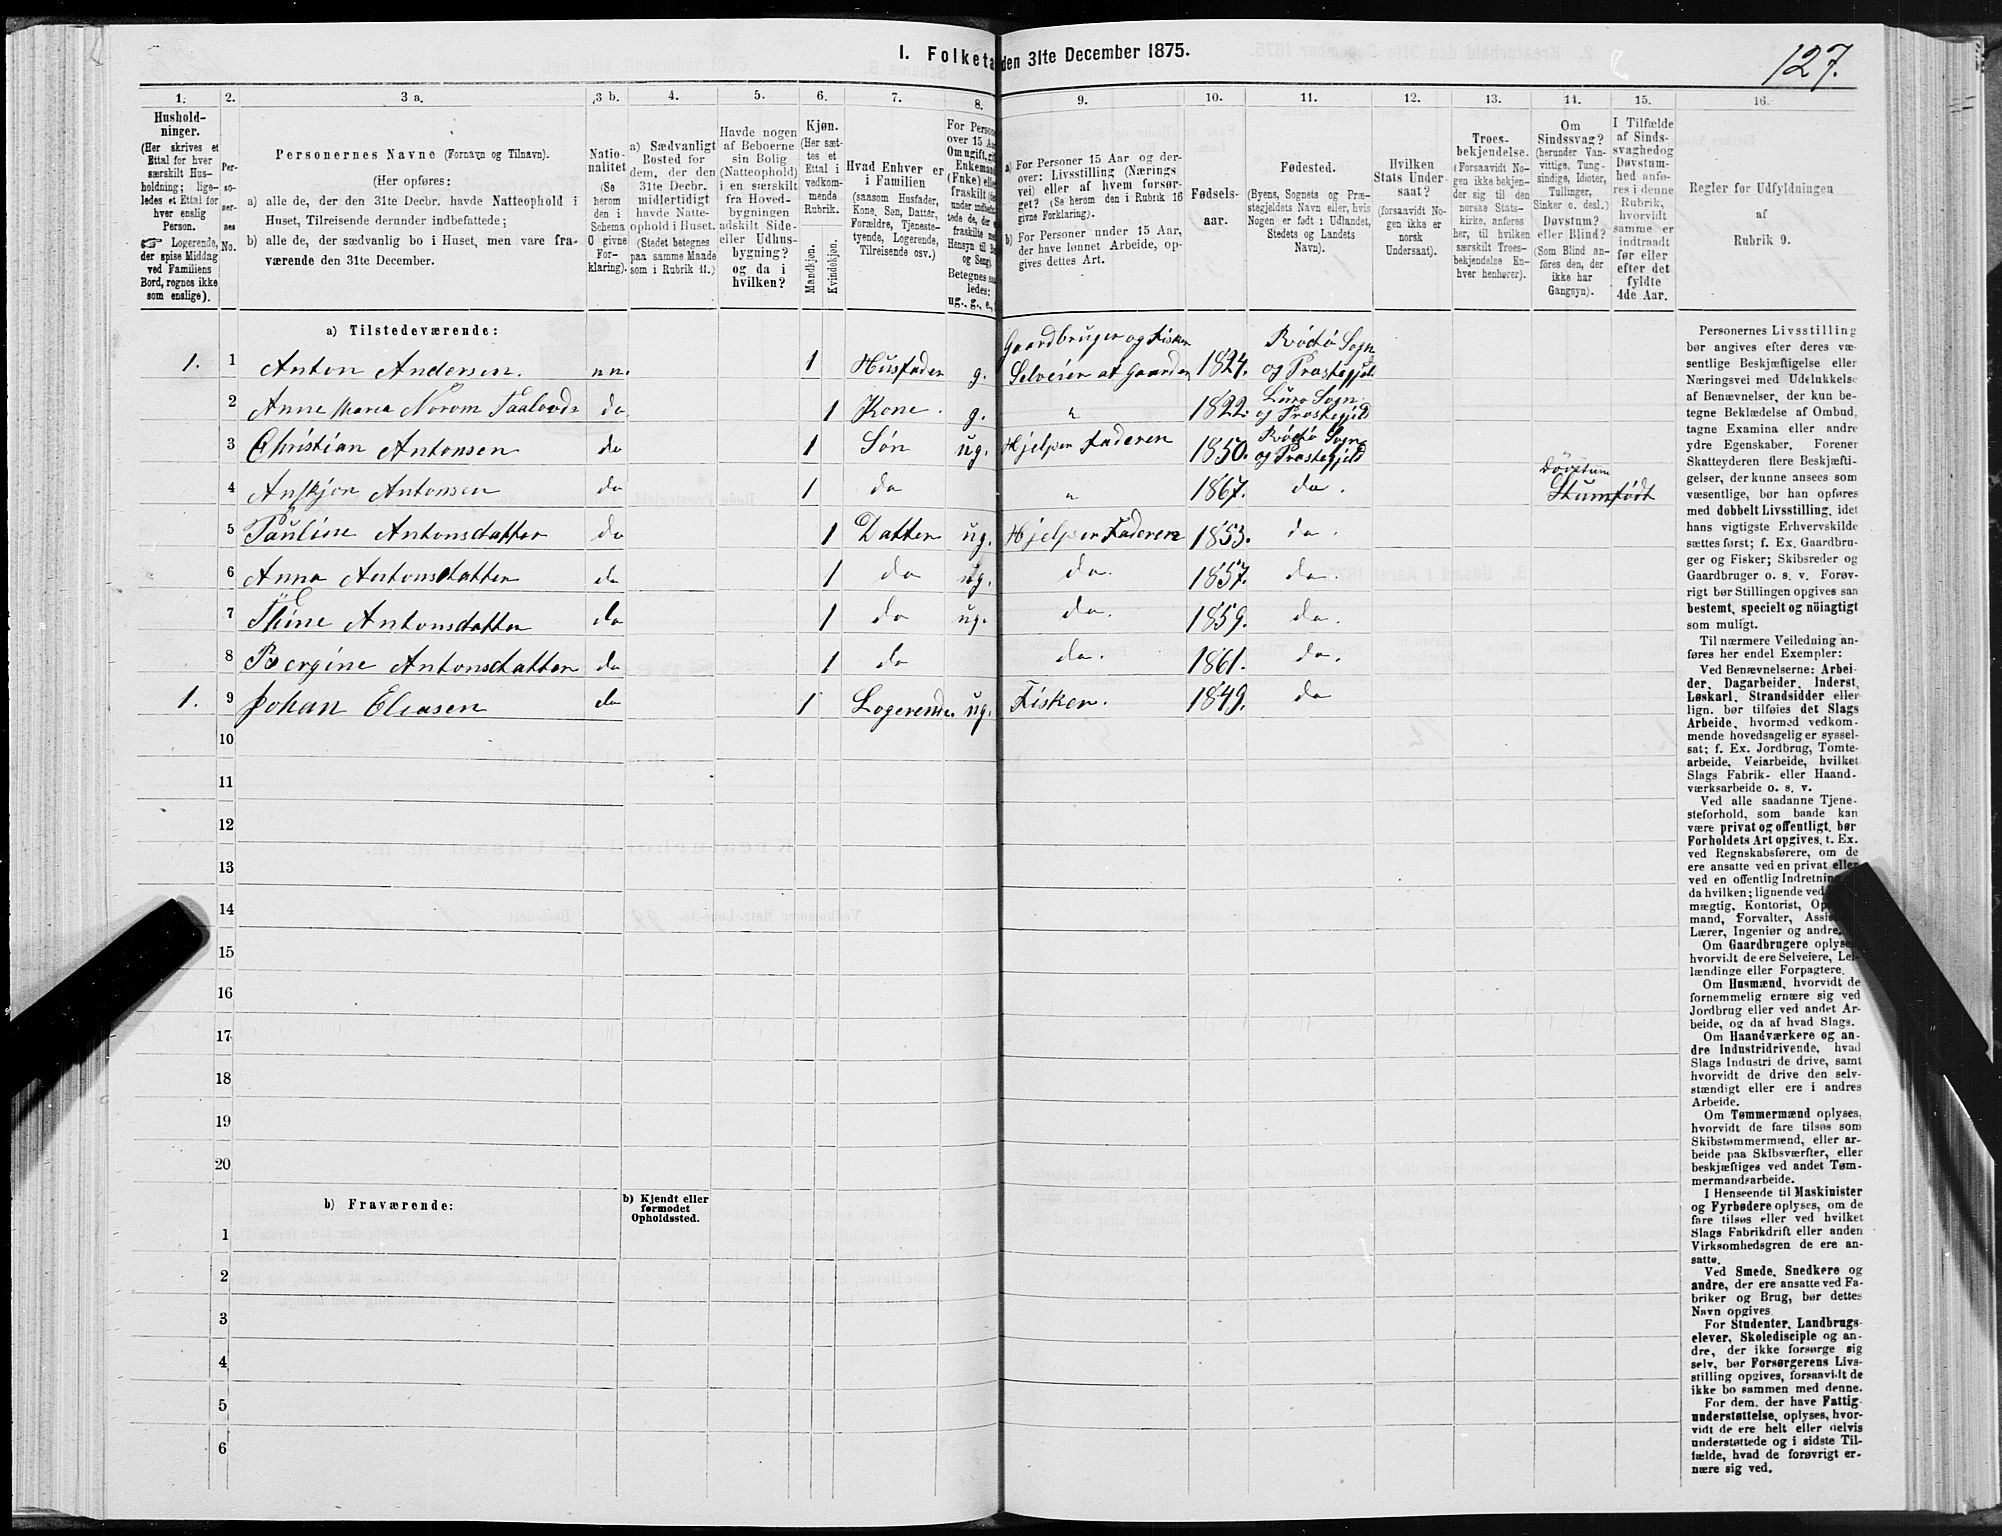 127.
I. Folketa den 31te December 1875.
1. 2. 3 a. 3 b. 4. 5. 6. 7. 8. 9. 10. 11. 12. 13. 14. 15. 16.
Hushold-
ninger.
(Her skrives et
Ettal for hver
særskilt Hus-
holdning; lige-
ledes et Ettal for
hver enslig
Person.
☞ Logerende,
der spise Middag
ved Familiens
Bord, regnes ikke
som enslige).
Per-
so-
ner-
nes
No.
Personernes Navne (Fornavn og Tilnavn).
(Her opføres:
a) alle de, der den 31te Decbr. havde Natteophold i
Huset, Tilreisende derunder indbefattede;
b) alle de, der sædvanlig bo i Huset, men vare fra-
værende den 31te December.
Natio-
nalitet
(Se
herom
den i
Schema
O givne
For-
klaring).
a) Sædvanligt
Bosted for
dem, der den
31te Decbr.
midlertidigt
havde Natte-
ophold i Huset.
(Stedet betegnes
paa samme Maade
som i Rubrik 11.)
Havde nogen
af Beboerne
sin Bolig
(Natteophold)
i en særskilt
fra Hoved-
bygningen
adskilt Side-
eller Udhus-
bygning?
og da i
hvilken?
Kjøn.
(Her sæt-
tes et
Ettal i
vedkom-
mende
Rubrik.
Mandkjøn.
Kvindekjøn.
Hvad Enhver er
i Familien
(saasom Husfader,
Kone, Søn, Datter,
Forældre, Tjeneste-
tyende, Logerende,
Tilreisende osv.)
For Persone
over 15 Aa
Om ugift, gif
Enkemand
(Enke) elle
fraskilt
Betegnes saa
ledes:
ug., g., e.,
a) For Personer 15 Aar og der-
over: Livsstilling (Nærings
vei) eller af hvem forsør-
get? (Se herom den i Rubrik 16
givne Forklaring).
b) For Personer under 15 Aar,
der have lønnet Arbeide, op-
gives dettes Art.
Fødsels-
aar.
Fødested.
(Byens, Sognets og Præ-
stegjeldets Navn eller, hvis
Nogen er født i Udlandet,
Stedets og Landets
Navn).
Hvilken
Stats Under-
saat?
(forsaavidt No-
gen ikke er
norsk
Undersaat).
Troes-
bekjendelse.
(Forsaavidt No-
gen ikke bekjen-
der sig til den
norske Stats-
kirke, anføres
her, til hvilken
særskilt Troes-
bekjendelse En-
hver henhører).
Om
Sindssvag?
(herunder Van-
vittige, Tung-
sindige, Idioter,
Tullinger,
Sinker o. desl.)
Døvstum?
eller Blind?
(Som Blind an-
føres den, der
ikke har
Gangsyn).
I Tilfælde
af Sinds-
svaghed og
Døvstum-
hed anfø-
res i denne
Rubrik,
hvorvidt
samme er
indtraadt
før eller
efter det
fyldte
4de Aar.
Regler for Udfyldningen
af
Rubrik 9.
a) Tilstedeværende:
1. 1 Anton Andersen. n.n. 1 Husfader g. Gaardbruger og Fisker Selveier af Gaarden 1824. Rödö Sogn og Prestegjeld
2 Anne Maria Norom do 1 Kone. g. " 1822. Lurø Sogn og Prestegjeld
3 Christian Antonsen do 1 Søn ug. Hjelper Faderen 1850. Rödö Sogn og Prestegjeld
4 Antonsen do 1 do " 1867. do. Dövstum Stumfødt
5 Pauline Antonsdatter do 1 Datter ug. Hjelper Faderen 1853. do.
6 Anna Antonsdatter do 1 do ug. do. 1857. do.
7 Antonsdatter do 1 do ug. do. 1859. do.
8 Bergine Antonsdatter do 1 do do. 1861. do.
1. 9 Johan Eliasen do 1 Logerende ug. Fisker. 1849. do
10
11
12
13
14
15
16
17
18
19
20
b) Fraværende:
b) Kjendt eller
formodet
Opholdssted.
1
2
3
4
5
6
Personernes Livsstilling
bør angives efter deres væ-
sentlige Beskjæftigelse eller
Næringsvei med Udelukkelse
af Benævnelser, der kun be-
tegne Beklædelse af Ombud,
tagne Examina eller andre
ydre Egenskaber. Forener
Skatteyderen flere Beskjæfti-
gelser, der kunne ansees som
væsentlige, bør han opføres
med dobbelt Livsstilling, idet
hans vigtigste Erhvervskilde
sættes først; f. Ex. Gaardbru-
ger og Fisker; Skibsreder og
Gaardbruger o. s. v. Forøv-
rigt bør Stillingen opgives saa
bestemt, specielt og nöiagtigt
som muligt.
Til nærmere Veiledning an-
føres her endel Exempler:
Ved Benævnelserne: Arbei-
der, Dagarbeider, Inderst,
Løskarl, Strandsidder eller
lign. bør tilføies det Slags
Arbeide, hvormed vedkom-
mende hovedsagelig er syssel-
sat; f. Ex. Jordbrug, Tomte-
arbeide, Veiarbeide, hvilket
Slags Fabrik- eller Haand-
værksarbeide o. s. v.
Ved alle saadanne Tjene-
steforhold, som baade kan
være privat og offentligt, bør
Forholdets Art opgives, t. Ex.
ved Regnskabsførere, om de
ere ansatte ved en privat eller
ved en offentlig Indretning
da hvilken; lignende ved
mægtig, Kontorist, Op
mand, Forvalter, Assis
Lærer, Ingeniør og andre.
Om Gaardbrugere oplyse
hvorvidt de ere Selveiere, Lei-
lændinge eller Forpagtere.
Om Husmænd, hvorvidt de
fornemmelig ernære sig ved
Jordbrug eller ved andet Ar-
beide, og da af hvad Slags.
Om Haandværkere og an-
dre Industridrivende, hvad
Slags Industri de drive, samt
hvorvidt de drive den selv-
stændigt eller ere i andres
Arbeide.
Om Tømmermænd oplyses,
hvorvidt de fare tilsøs som
Skibstømmermænd, eller ar-
beide paa Skibsværfter, eller
beskjæftiges ved andet Tøm-
mermandsarbeide.
I Henseende til Maskinister
og Fyrbødere oplyses, om de
fare tilsøs eller ved hvilket
Slags Fabrikdrift eller anden
Virksomhedsgren de ere an-
satte.
Ved Smede, Snedkere og
andre, der ere ansatte ved Fa-
briker og Brug, bør dettes
Navn opgives.
For Studenter, Landbrugs-
elever, Skoledisciple og an-
dre, der ikke forsørge sig
selv, bør Forsørgerens Livs-
stilling opgives, forsaavidt de
ikke bo sammen med denne.
For dem, der have Fattig-
understøttelse, oplyses, hvor-
vidt de ere helt eller delvis
understøttede og i sidste Til-
fælde, hvad de forøvrigt er-
nære sig ved.